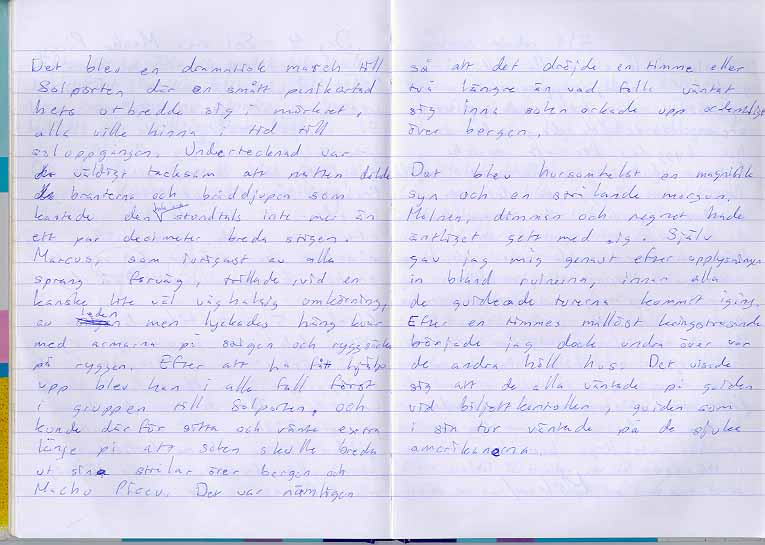 Det blev en dramatisk marsch till
Solporten där en smått panikartad
hets utbredde sig i mörkret,
alla ville hinna i tid till
soluppgången. Undertecknad var
väldigt tacksam att natten dolde
branterna och bråddjupen som
kantade den stundtals inte mer än
ett par decimeter breda stigen.
Marcus, som ivrigast av alla
sprang i förväg, trillade vid en
kanske lite väl våghalsig omkörning,
av leden men lyckades häng kvar
med armarna på stigen och ryggsäck
på ryggen. Efter att ha fått hjälp
upp blev han i alla fall först
i gruppen till Solporten, och
kunde därför sitta och vänta extra
länge på att solen skulle breda
ut sina strålar över bergen och
Machu Piccu. Det var nämligen
så att det dröjde en timme eller
två längre än vad folk väntat
sig innan solen orkade upp ordentligt
över bergen.
Det blev hursomhelst en magnifik
syn och en strålande morgon.
Molnen, dimman och regnet hade
äntligen gett med sig. Själv
gav jag mig genast efter upplysningen
in bland ruinerna, innan alla
de guidade turerna kommit igång.
Efter en timmes mållöst kringströvande
började jag dock undra över var
de andra höll hus. Det visade
sig att de alla väntade på guiden
vid biljettkontrollen, guiden som
i sin tur väntade på de sjuka
amerikanerna.